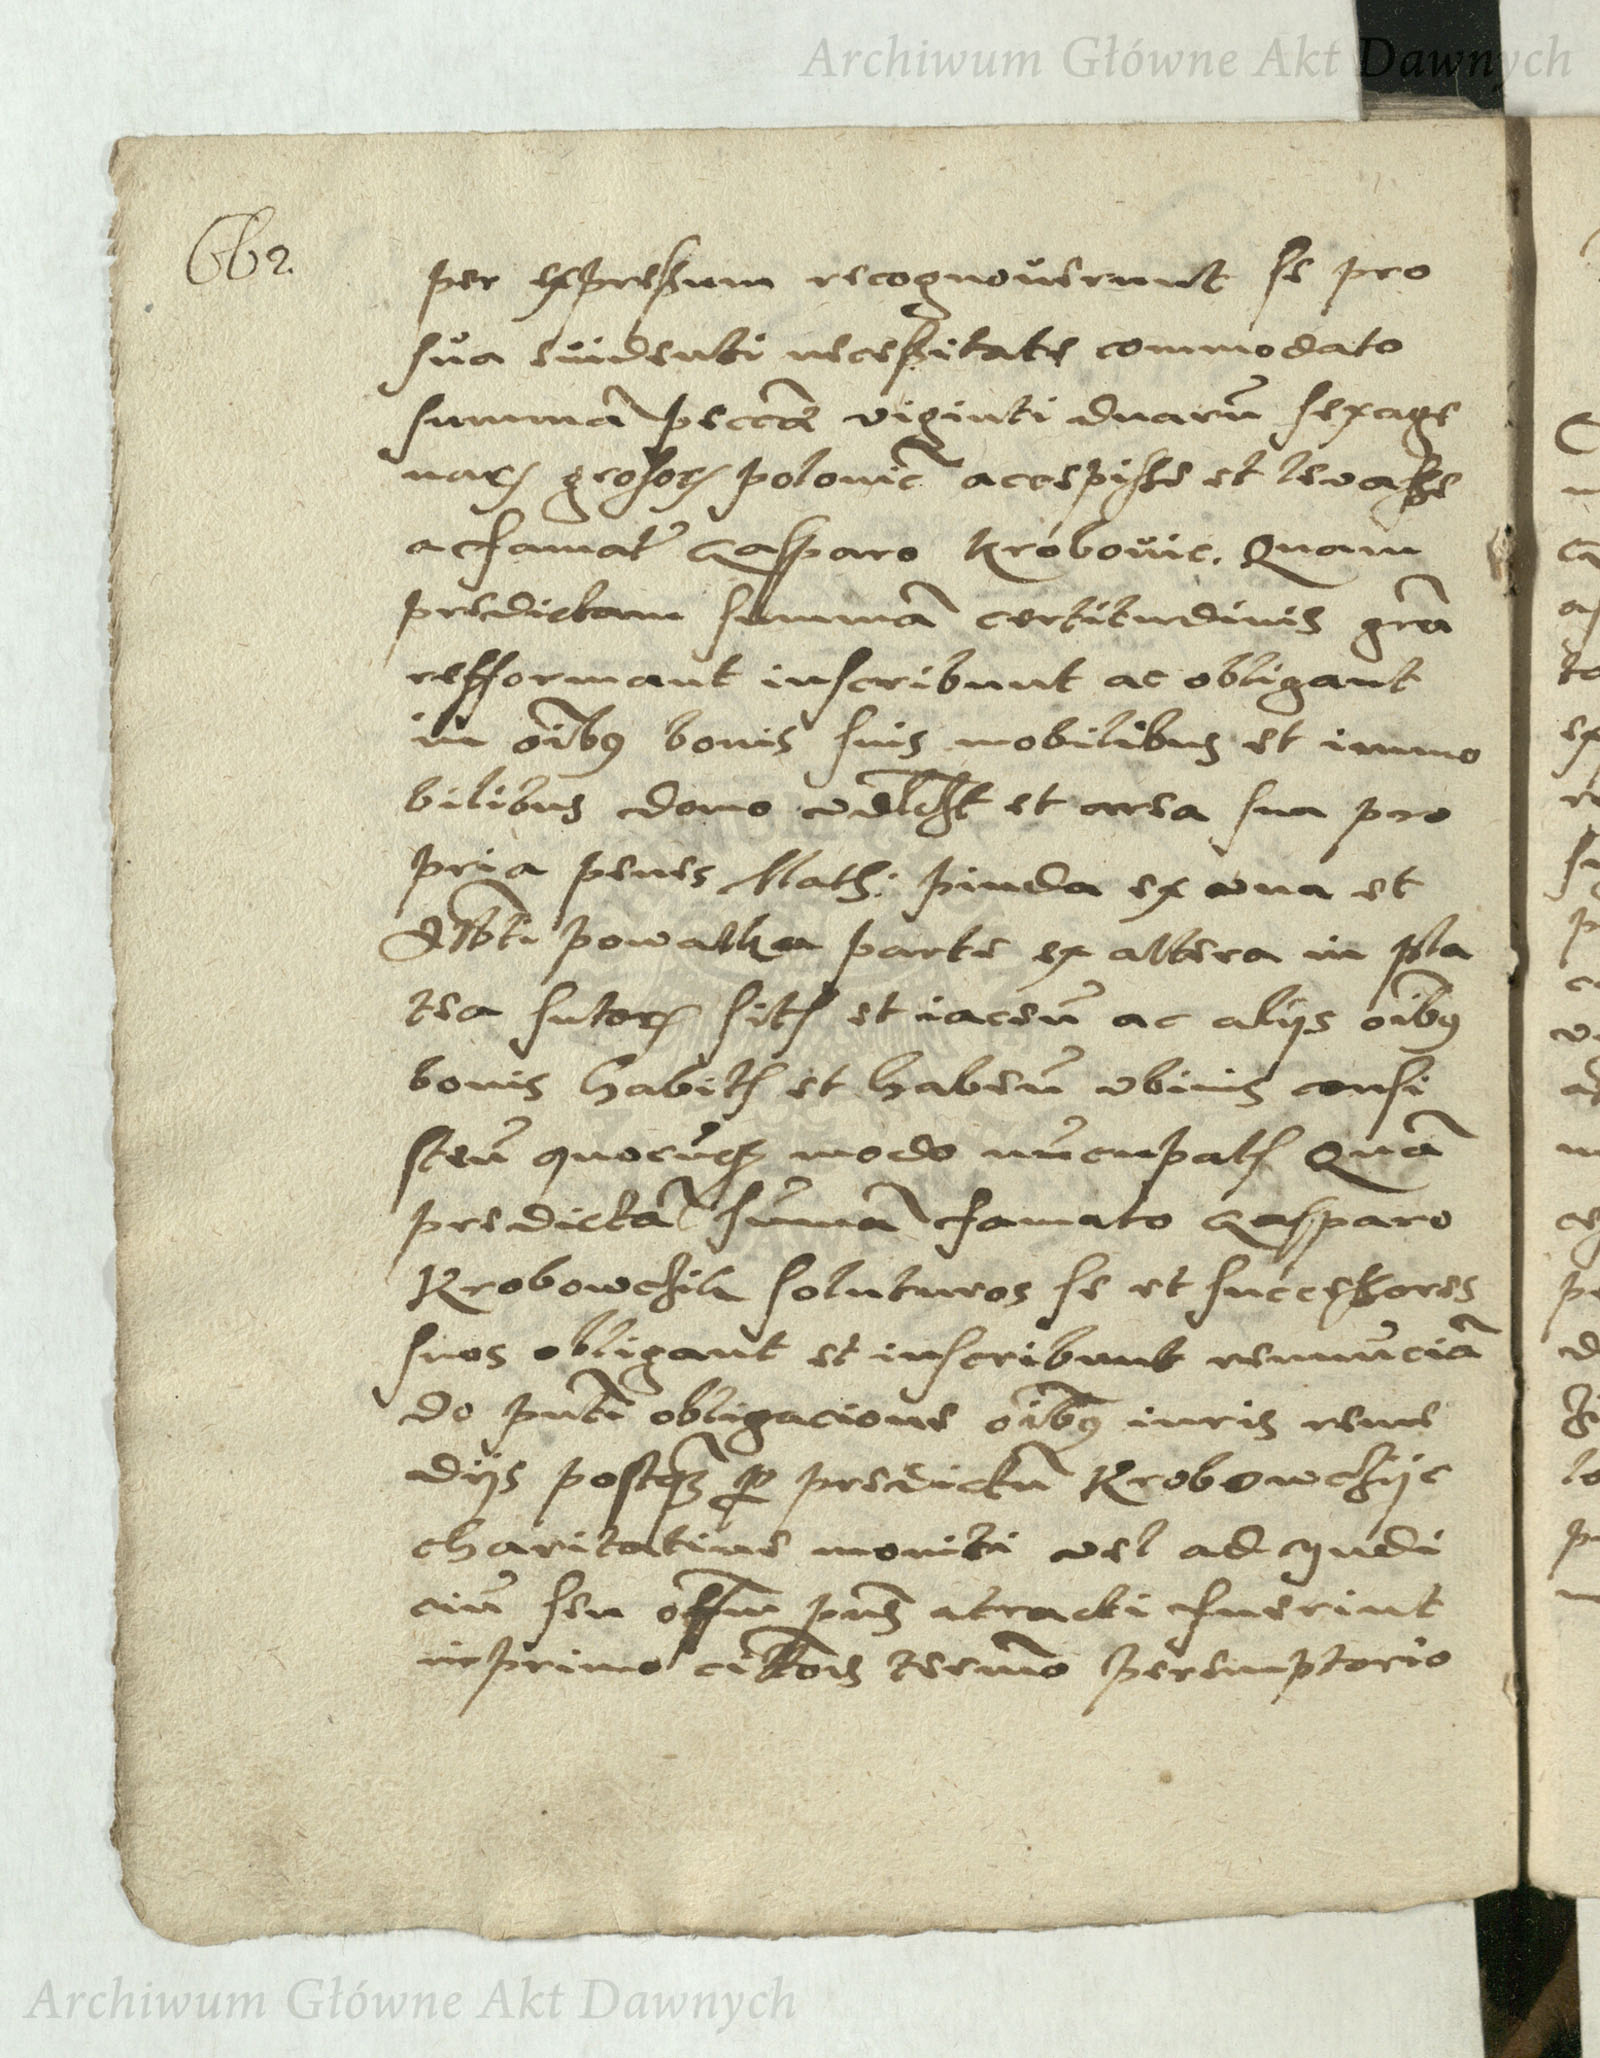 Archiwum Główne Akt Dawnych
662.
per expressum recognoverunt se pro
sua euidenti necessitate commodato
summā pecc̄e viginti duarū sexage
nar̄ grosor̄ polonic̄ accepisse et levasse
a famat̄ Casparo Krobovic. Quam
predictam summā certitudinis grā
refformant inscribunt ac obligant
in oib9 bonis suis mobilibus et immo
bilibus domo vdlczt et area sua pro
pria penes Math: pinda ex vna et
powalka parte ex altera in pla
tea sutor̄ sit̄ et iaceñ ac alijs oib9
bonis habit̄ et habeñ vbiuis consi
steñ quocuq3 modo nūcupat̄ Quā
predictā sūmā famato Casparo
Krobowczik soluturos se et successores
suos obligant et inscribunt renūciā
do pn̄ti obligacione oib9 iuris reme
dijs postq3 p̱ predictū Krobowczijc
charitatiue moniti vel ad iudi
ciū seu offm pn̄s atracti fuerint
in primo cit̄ois termo peremptorio
Archiwum Główne Akt Dawnych